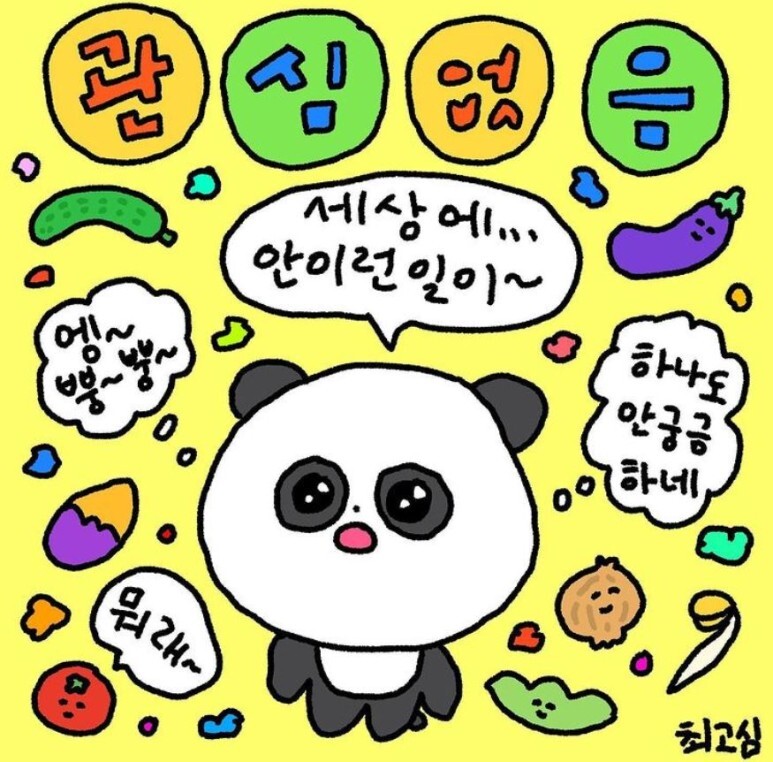 관심없음
세상에...
안이런일이~
엥~
뿡~뿡~
하나도
안궁금
하네
뭐래~
최고심